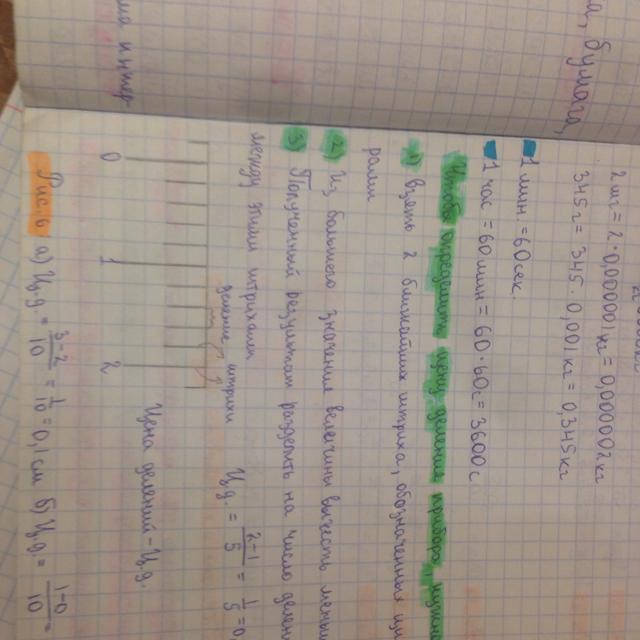 а, бумаг,
2мг = 2 · 0,000001кг = 0,000002кг
345г = 345 · 0,001кг = 0,345кг
1 мин = 60сек.
1 час = 60 мин = 60·60с = 3600с
цену деления прибора
1) Взять 2 ближайших штриха, обозначенных
2) Из большего значения величины вычесть
3) Полученный результат разделить на число
между этими штрихами.
деление штрихи
Цд = 2-1/5 = 1/5 = 0
0 1 2
Цена делений - Цд.
Рис.6 а) Цд. = 3-2/10 = 1/10 = 0,1см б) Цд = 1-0/10 =